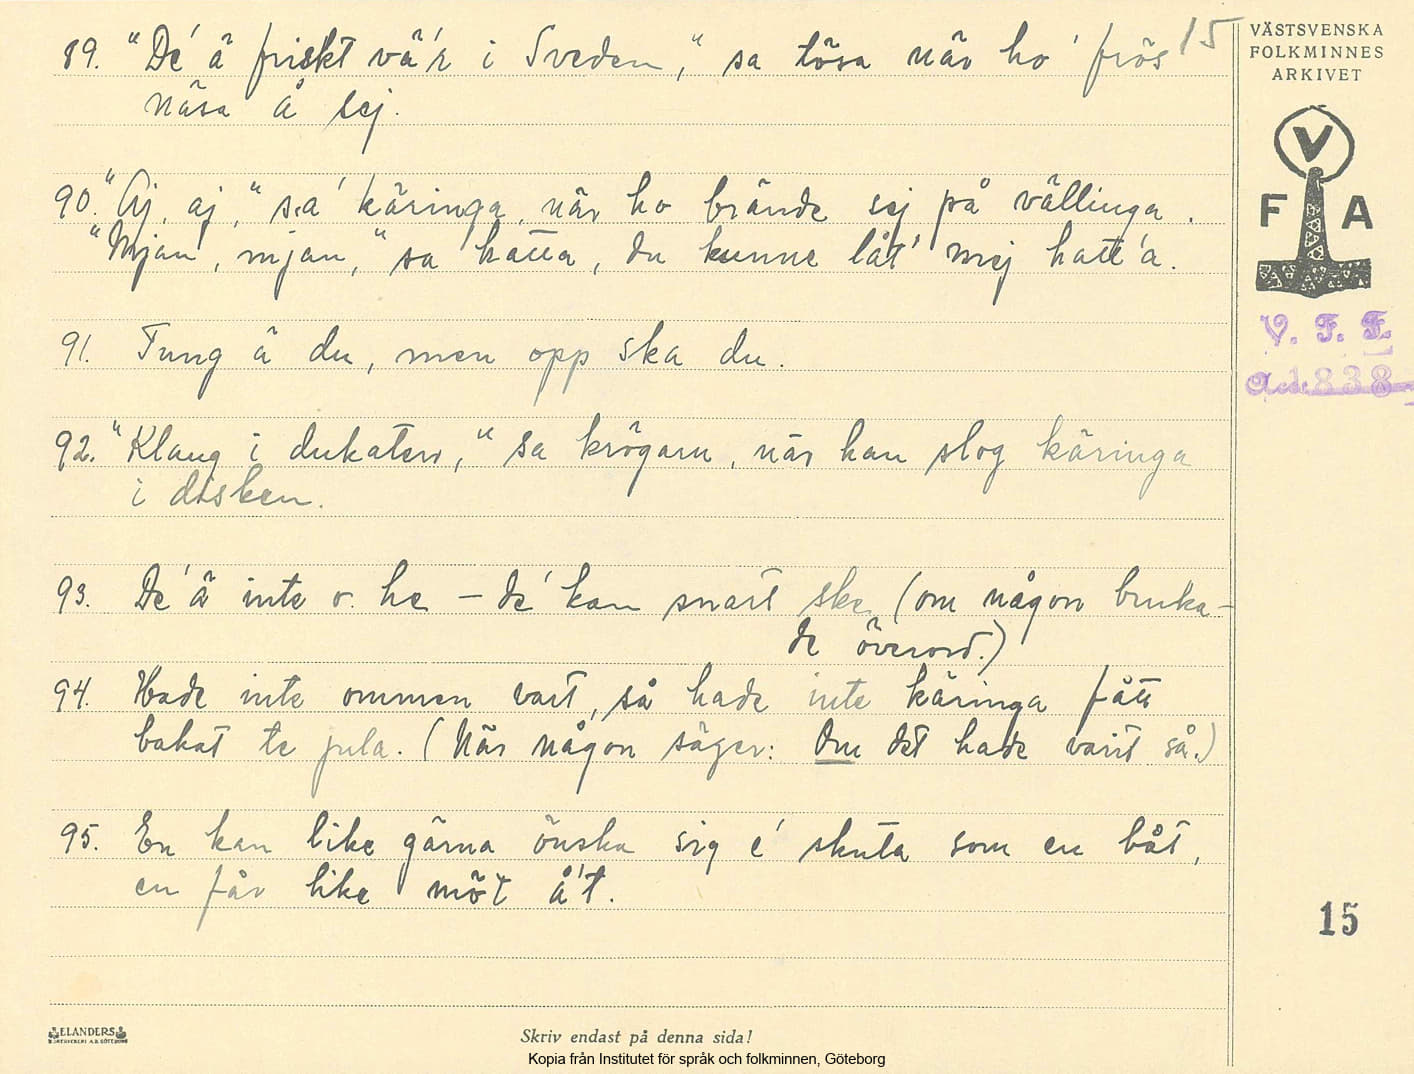 15
89. "De' ä friskt vä'r i Sveden," sa tösa när ho' frös
näsa å sej.
90. "Aj, aj," sa' käringa, när ho brände sej på vällinga.
"Mjau, mjau," sa katta, du kunne låt' mej hatt'a.
91. Tung ä du, men opp ska du.
92. "Klang i dukaten," sa krögarn, när han slog käringa
i disken.
93. De' ä inte v. he – de' kan snart ske (om någon bruka-
de överord.)
94. Hade inte ommen vart, så hade inte käringa fått
bakat te jula. (När någon säger: Om det hade varit så.)
95. En kan like gärna önska sig e' skuta som en båt,
en får like mö't å't.
VÄSTSVENSKA
FOLKMINNES
ARKIVET
V
F A
V. F. F.
Acc. 1838
15
ELANDERS
Skriv endast på denna sida!
Kopia från Institutet för språk och folkminnen, Göteborg